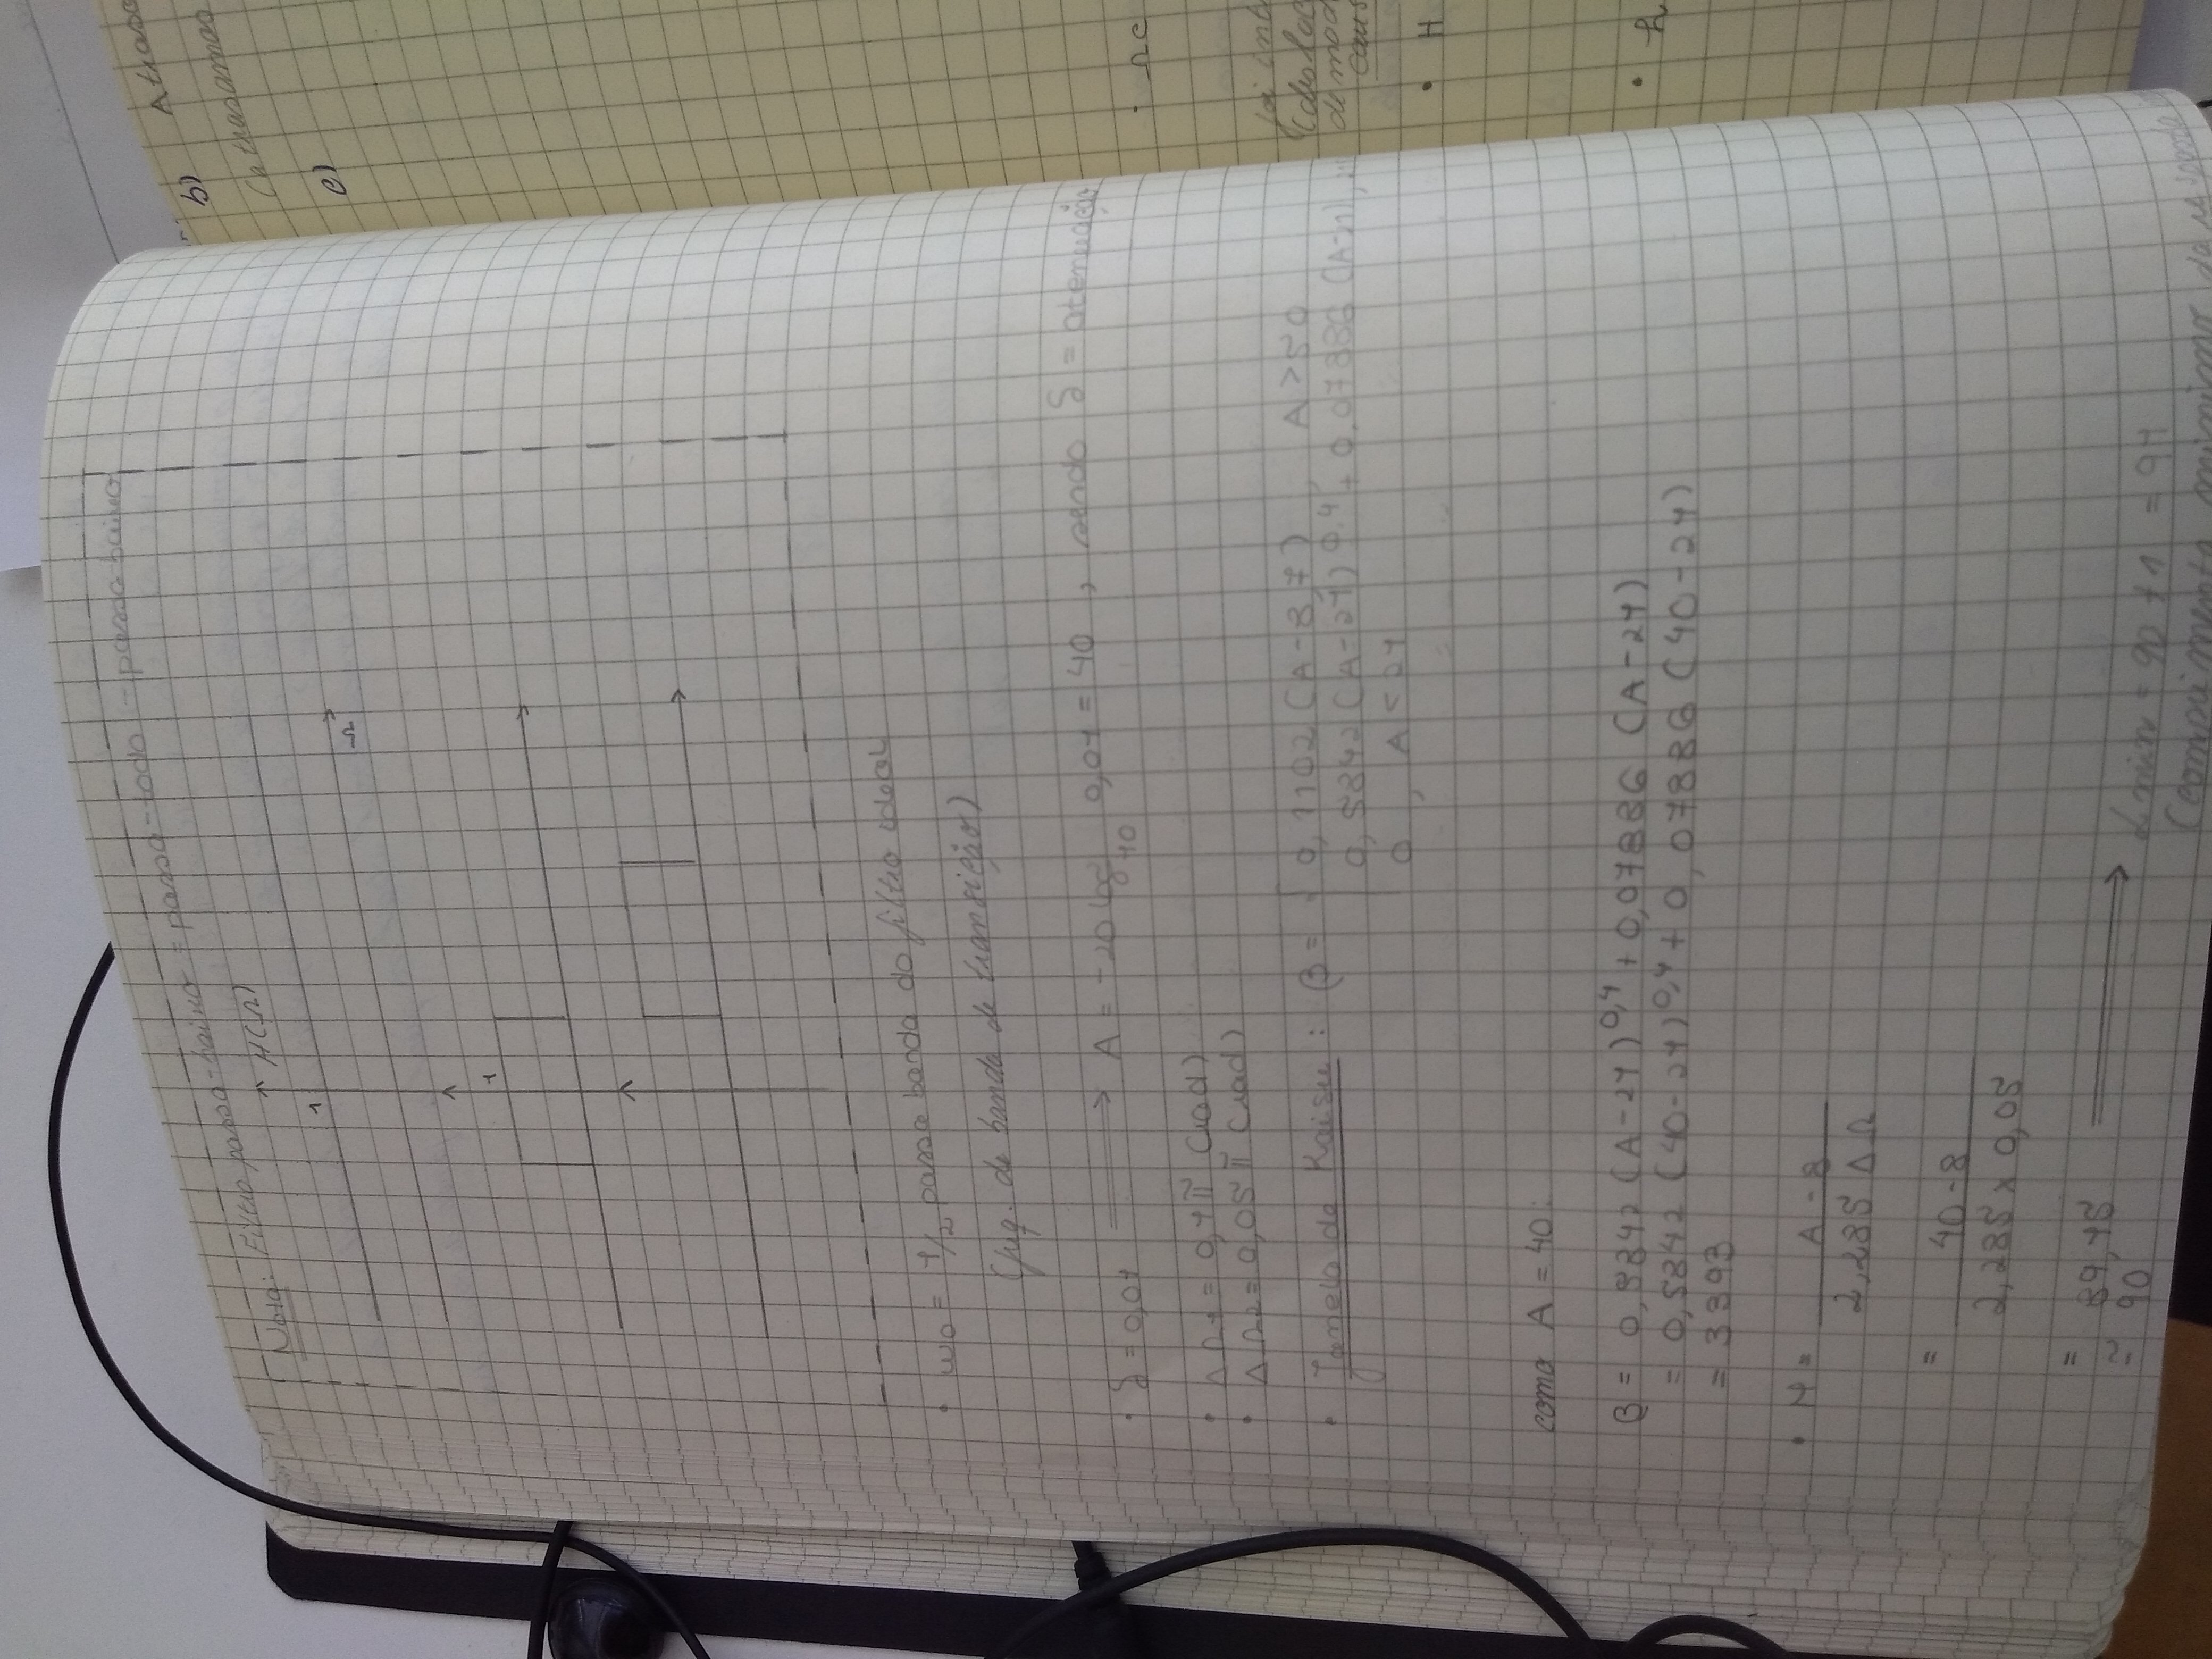 Nota: Filtro passa-baixo = passa-todo - passa-baixo
H(Ω)
1
Ω
1
• ω0 = 1/2 passa banda do filtro ideal
(freq. de banda de transição)
• δ = 0,01 ⟹ A = -20 log10 0,01 = 40 , sendo δ = atenuação
• ΔΩ1 = 0,1π (rad)
• ΔΩ2 = 0,05π (rad)
• Janela de Kaiser : β = { 0,1102 (A-8,7) , A > 50
0,5842 (A-21)^0,4 + 0,07886 (A-21),
0 , A < 21
como A = 40:
β = 0,5842 (A-21)^0,4 + 0,07886 (A-21)
= 0,5842 (40-21)^0,4 + 0,07886 (40-21)
= 3393
• M = A - 8 / 2,285 ΔΩ
= 40 - 8 / 2,285 x 0,05
= 89,15
≈ 90 ⟹ Lmin = 90 + 1 = 91
(comprimento mínimo da resposta
b) Atraso
(atrasamos
c)
• Ωc
foi int
de mod
caus
• H
• h